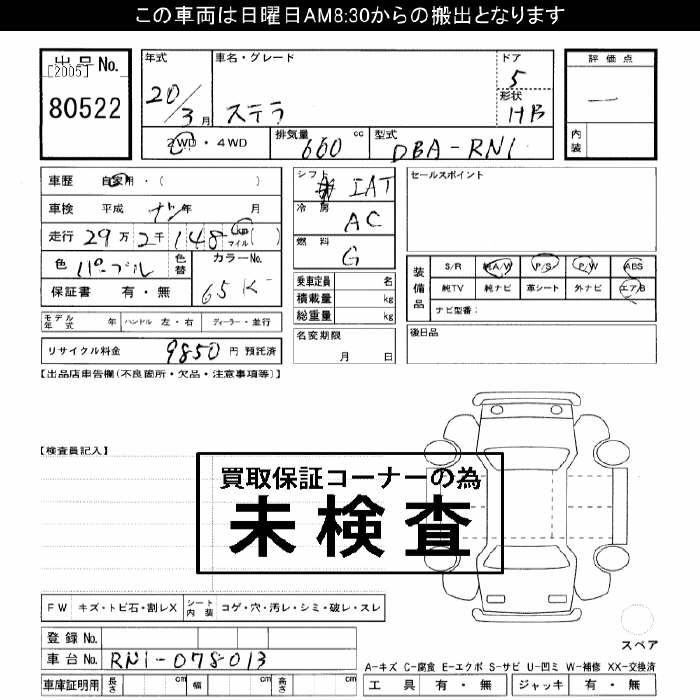 この車両は日曜日AM8:30からの搬出となります
出品No.
[2005]
80522
年式
20/3月
車名・グレード
ステラ
ドア
5
形状
HB
評価点
—
内装
2WD・4WD
排気量
660 cc
型式
DBA-RN1
車歴 自家用・( )
車検 平成 年 月
走行 29万2千148 km マイル ( )
色 パープル 色替
カラーNo.
65K
保証書 有・無
シフト IAT
冷房 AC
燃料 G
セールスポイント
乗車定員 名
積載量 kg
総重量 kg
装備品
S/R 純A/W P/S P/W ABS
純TV 純ナビ 革シート 外ナビ エアB
ナビ型番:
モデル年式 年 ハンドル 左・右 ディーラー・並行
名変期限
月 日
後日品
リサイクル料金 9850 円 預託済
【出品店車告欄(不良箇所・欠品・注意事項等)】
【検査員記入】
買取保証コーナーの為
未検査
FW キズ・トビ石・割レX シート内装 コゲ・穴・汚レ・シミ・破レ・スレ
登録No.
車台No. RN1-078013
車庫証明用 長さ cm 幅 cm 高さ cm
スペア
A-キズ C-腐食 E-エクボ S-サビ U-凹ミ W-補修 XX-交換済
工具 有・無 ジャッキ 有・無